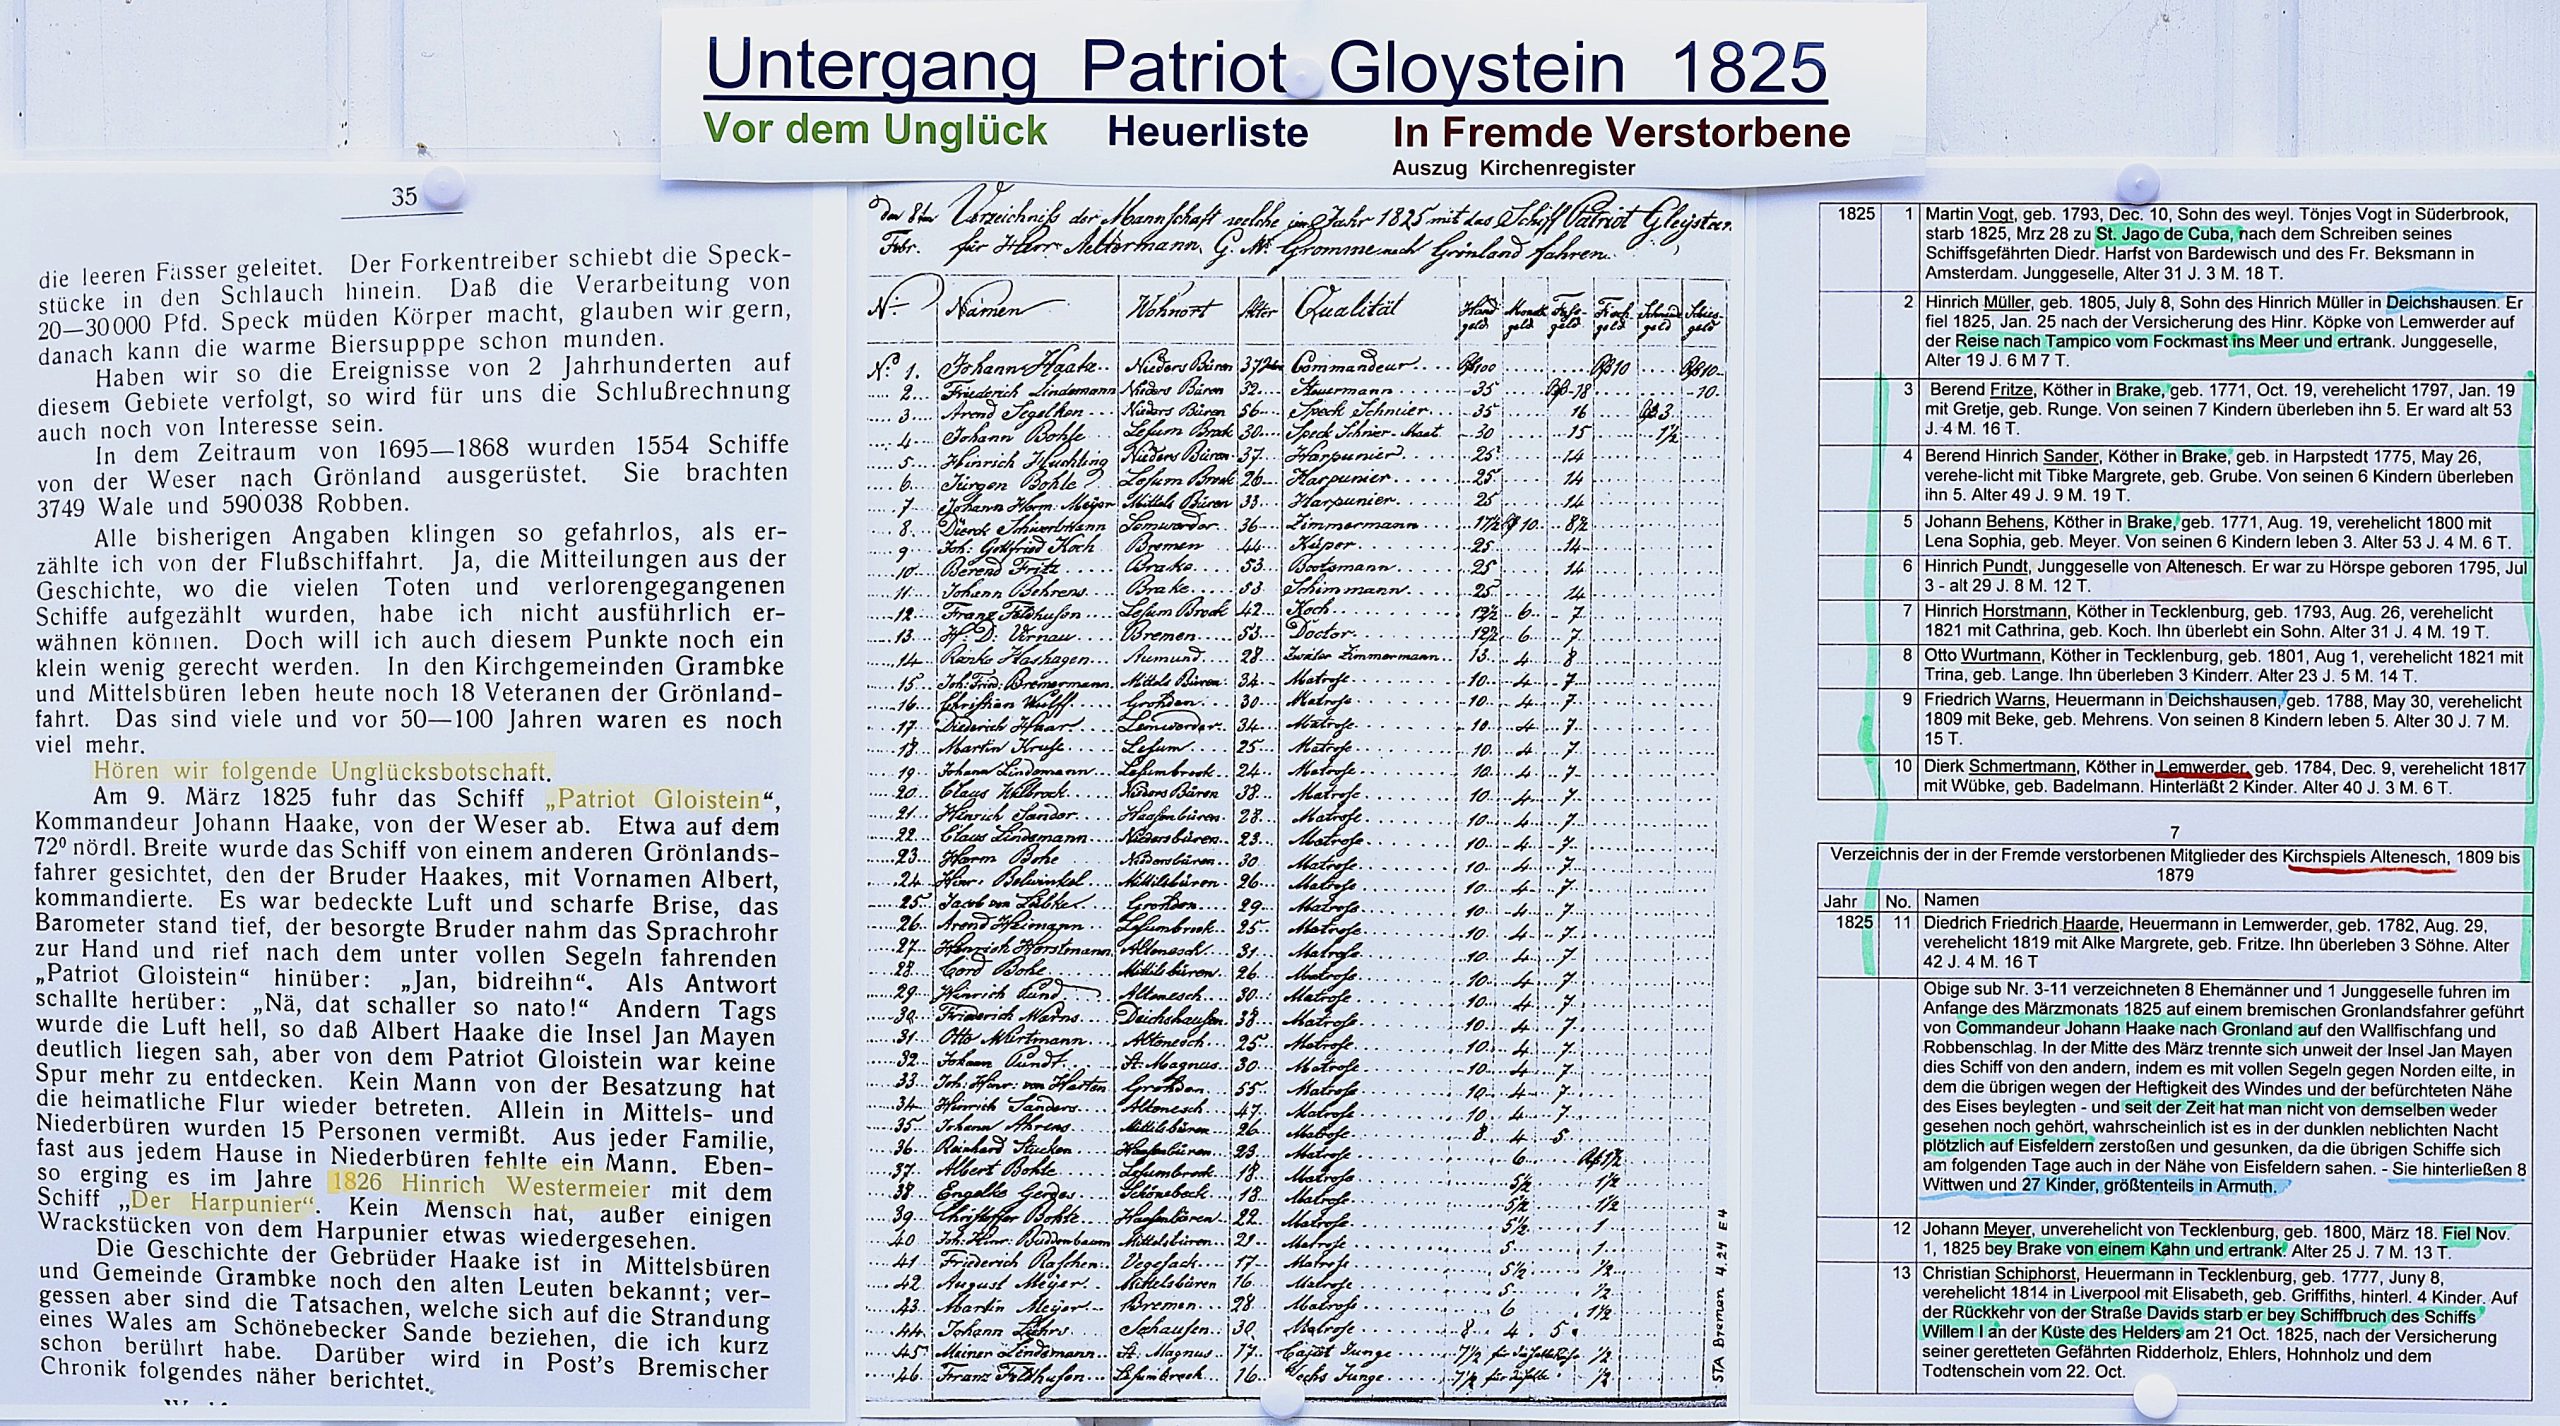 Untergang Patriot Gloystein 1825
Vor dem Unglück Heuerliste In Fremde Verstorbene
Auszug Kirchenregister
35
die leeren Fässer geleitet. Der Forkentreiber schiebt die Speck-
stücke in den Schlauch hinein. Daß die Verarbeitung von
20—30000 Pfd. Speck müden Körper macht, glauben wir gern,
danach kann die warme Biersupppe schon munden.
Haben wir so die Ereignisse von 2 Jahrhunderten auf
diesem Gebiete verfolgt, so wird für uns die Schlußrechnung
auch noch von Interesse sein.
In dem Zeitraum von 1695—1868 wurden 1554 Schiffe
von der Weser nach Grönland ausgerüstet. Sie brachten
3749 Wale und 590038 Robben.
Alle bisherigen Angaben klingen so gefahrlos, als er-
zählte ich von der Flußschiffahrt. Ja, die Mitteilungen aus der
Geschichte, wo die vielen Toten und verlorengegangenen
Schiffe aufgezählt wurden, habe ich nicht ausführlich er-
wähnen können. Doch will ich auch diesem Punkte noch ein
klein wenig gerecht werden. In den Kirchgemeinden Grambke
und Mittelsbüren leben heute noch 18 Veteranen der Grönland-
fahrt. Das sind viele und vor 50—100 Jahren waren es noch
viel mehr.
Hören wir folgende Unglücksbotschaft.
Am 9. März 1825 fuhr das Schiff „Patriot Gloistein“,
Kommandeur Johann Haake, von der Weser ab. Etwa auf dem
72⁰ nördl. Breite wurde das Schiff von einem anderen Grönlands-
fahrer gesichtet, den der Bruder Haakes, mit Vornamen Albert,
kommandierte. Es war bedeckte Luft und scharfe Brise, das
Barometer stand tief, der besorgte Bruder nahm das Sprachrohr
zur Hand und rief nach dem unter vollen Segeln fahrenden
„Patriot Gloistein“ hinüber: „Jan, bidreihn“. Als Antwort
schallte herüber: „Nä, dat schaller so nato!“ Andern Tags
wurde die Luft hell, so daß Albert Haake die Insel Jan Mayen
deutlich liegen sah, aber von dem Patriot Gloistein war keine
Spur mehr zu entdecken. Kein Mann von der Besatzung hat
die heimatliche Flur wieder betreten. Allein in Mittels- und
Niederbüren wurden 15 Personen vermißt. Aus jeder Familie,
fast aus jedem Hause in Niederbüren fehlte ein Mann. Eben-
so erging es im Jahre 1826 Hinrich Westermeier mit dem
Schiff „Der Harpunier“. Kein Mensch hat, außer einigen
Wrackstücken von dem Harpunier etwas wiedergesehen.
Die Geschichte der Gebrüder Haake ist in Mittelsbüren
und Gemeinde Grambke noch den alten Leuten bekannt; ver-
gessen aber sind die Tatsachen, welche sich auf die Strandung
eines Wales am Schönebecker Sande beziehen, die ich kurz
schon berührt habe. Darüber wird in Post's Bremischer
Chronik folgendes näher berichtet.
den 8ten Verzeichniß der Mannschaft welche im Jahr 1825 mit das Schiff Patriot Gleystein
Febr. für Herr Aeltermann G. M. Gromme nach Grönland fahren.
No. Namen Wohnort Alter Qualität Hand geld Monats geld Fass- geld Fisch geld Schneide geld Schies- geld
No. 1. Johann Haake Nieders Büren 37 Commandeur 100 10 10
2 Friederich Lindemann Nieders Büren 32 Steuermann 35 18 10
3 Arend Segelken Nieders Büren 56 Speck Schneier 35 16 3
4 Johann Bohle Lesum Brook 30 Speck Schneir-Maat 30 15 1½
5 Hinrich Huchting Nieders Büren 37 Harpunier 25 14
6 Jürgen Bohle Lesum Brook 26 Harpunier 25 14
7 Johann Herm. Meyer Mittels Büren 33 Harpunier 25 14
8 Dierck Schmertmann Lemwerder 36 Zimmermann 17½ 10 8½
9 Joh: Gottfried Koch Bremen 44 Küper 25 14
10 Berend Fritz Brake 53 Bootsmann 25 14
11 Johann Behrens Brake 53 Schimmann 25 14
12 Franz Feldhusen Lesum Brook 42 Koch 12½ 6 7
13 H. D. Vernau Bremen 53 Doctor 12½ 6 7
14 Renke Hashagen Aumund 28 Zweiter Zimmermann 13 4 8
15 Joh: Fried: Bremermann Mittels Büren 34 Matrose 10 4 7
16 Christian Wulff Grohden 30 Matrose 10 4 7
17 Diederich Haar Lemwerder 34 Matrose 10 4 7
18 Martin Kruse Lesum 25 Matrose 10 4 7
19 Johann Lindemann Lesumbrook 24 Matrose 10 4 7
20 Claus Hilbrock Nieders Büren 38 Matrose 10 4 7
21 Hinrich Sander Haasenbüren 28 Matrose 10 4 7
22 Claus Lindemann Niedersbüren 23 Matrose 10 4 7
23 Harm Bohe Niedersbüren 30 Matrose 10 4 7
24 Hinr: Belwinkel Mittelsbüren 26 Matrose 10 4 7
25 Jacob von Lübke Grohden 29 Matrose 10 4 7
26 Arend Heimann Lesumbrook 25 Matrose 10 4 7
27 Henrich Horstmann Altenesch 31 Matrose 10 4 7
28 Cord Bohe Mittelsbüren 26 Matrose 10 4 7
29 Hinrich Pund Altenesch 30 Matrose 10 4 7
30 Friederich Warns Deichshausen 38 Matrose 10 4 7
31 Otto Wurtmann Altenesch 25 Matrose 10 4 7
32 Johann Pundt St. Magnus 30 Matrose 10 4 7
33 Joh: Hinr: von Harten Grohden 55 Matrose 10 4 7
34 Hinrich Sanders Altenesch 47 Matrose 10 4 7
35 Johann Ahrens Mittelsbüren 26 Matrose 8 4 5
36 Reinhard Stucken Haasenbüren 23 Matrose 6 1½
37 Albert Bohle Lesumbrook 18 Matrose 5½ 1½
38 Engelke Gerdes Schönebeck 18 Matrose 5½ 1½
39 Christoffer Bohte Hasenbüren 22 Matrose 5½ 1
40 Joh: Hinr: Buddenbaum Mittelsbüren 21 Matrose 5 1
41 Friederich Raschen Vegesack 17 Matrose 5½ ½
42 August Meyer Mittelsbüren 16 Matrose 5 ½
43 Martin Meyer Bremen 28 Matrose 6 1½
44 Johann Lührs Schausen 30 Matrose 8 4 5
45 Meiner Lindemann St. Magnus 17 Cajüt Junge 7½ ½
46 Franz Feldhusen Lesumbrook 16 Kochs Junge 7½ ½
STA Bremen 4,24 E4
1825 1 Martin Vogt, geb. 1793, Dec. 10, Sohn des weyl. Tönjes Vogt in Süderbrook,
starb 1825, Mrz 28 zu St. Jago de Cuba, nach dem Schreiben seines
Schiffsgefährten Diedr. Harfst von Bardewisch und des Fr. Beksmann in
Amsterdam. Junggeselle, Alter 31 J. 3 M. 18 T.
2 Hinrich Müller, geb. 1805, July 8, Sohn des Hinrich Müller in Deichshausen. Er
fiel 1825, Jan. 25 nach der Versicherung des Hinr. Köpke von Lemwerder auf
der Reise nach Tampico vom Fockmast ins Meer und ertrank. Junggeselle,
Alter 19 J. 6 M 7 T.
3 Berend Fritze, Köther in Brake, geb. 1771, Oct. 19, verehelicht 1797, Jan. 19
mit Gretje, geb. Runge. Von seinen 7 Kindern überleben ihn 5. Er ward alt 53
J. 4 M. 16 T.
4 Berend Hinrich Sander, Köther in Brake, geb. in Harpstedt 1775, May 26,
verehe-licht mit Tibke Margrete, geb. Grube. Von seinen 6 Kindern überleben
ihn 5. Alter 49 J. 9 M. 19 T.
5 Johann Behens, Köther in Brake, geb. 1771, Aug. 19, verehelicht 1800 mit
Lena Sophia, geb. Meyer. Von seinen 6 Kindern leben 3. Alter 53 J. 4 M. 6 T.
6 Hinrich Pundt, Junggeselle von Altenesch. Er war zu Hörspe geboren 1795, Jul
3 - alt 29 J. 8 M. 12 T.
7 Hinrich Horstmann, Köther in Tecklenburg, geb. 1793, Aug. 26, verehelicht
1821 mit Cathrina, geb. Koch. Ihn überlebt ein Sohn. Alter 31 J. 4 M. 19 T.
8 Otto Wurtmann, Köther in Tecklenburg, geb. 1801, Aug 1, verehelicht 1821 mit
Trina, geb. Lange. Ihn überleben 3 Kinderr. Alter 23 J. 5 M. 14 T.
9 Friedrich Warns, Heuermann in Deichshausen, geb. 1788, May 30, verehelicht
1809 mit Beke, geb. Mehrens. Von seinen 8 Kindern leben 5. Alter 30 J. 7 M.
15 T.
10 Dierk Schmertmann, Köther in Lemwerder, geb. 1784, Dec. 9, verehelicht 1817
mit Wübke, geb. Badelmann. Hinterläßt 2 Kinder. Alter 40 J. 3 M. 6 T.
7
Verzeichnis der in der Fremde verstorbenen Mitglieder des Kirchspiels Altenesch, 1809 bis
1879
Jahr No. Namen
1825 11 Diedrich Friedrich Haarde, Heuermann in Lemwerder, geb. 1782, Aug. 29,
verehelicht 1819 mit Alke Margrete, geb. Fritze. Ihn überleben 3 Söhne. Alter
42 J. 4 M. 16 T
Obige sub Nr. 3-11 verzeichneten 8 Ehemänner und 1 Junggeselle fuhren im
Anfange des Märzmonats 1825 auf einem bremischen Gronlandsfahrer geführt
von Commandeur Johann Haake nach Gronland auf den Wallfischfang und
Robbenschlag. In der Mitte des März trennte sich unweit der Insel Jan Mayen
dies Schiff von den andern, indem es mit vollen Segeln gegen Norden eilte, in
dem die übrigen wegen der Heftigkeit des Windes und der befürchteten Nähe
des Eises beylegten - und seit der Zeit hat man nicht von demselben weder
gesehen noch gehört, wahrscheinlich ist es in der dunklen neblichten Nacht
plötzlich auf Eisfeldern zerstoßen und gesunken, da die übrigen Schiffe sich
am folgenden Tage auch in der Nähe von Eisfeldern sahen. - Sie hinterließen 8
Wittwen und 27 Kinder, größtenteils in Armuth.
12 Johann Meyer, unverehelicht von Tecklenburg, geb. 1800, März 18. Fiel Nov.
1, 1825 bey Brake von einem Kahn und ertrank. Alter 25 J. 7 M. 13 T.
13 Christian Schiphorst, Heuermann in Tecklenburg, geb. 1777, Juny 8,
verehelicht 1814 in Liverpool mit Elisabeth, geb. Griffiths, hinterl. 4 Kinder. Auf
der Rückkehr von der Straße Davids starb er bey Schiffbruch des Schiffs
Willem I an der Küste des Helders am 21 Oct. 1825, nach der Versicherung
seiner geretteten Gefährten Ridderholz, Ehlers, Hohnholz und dem
Todtenschein vom 22. Oct.